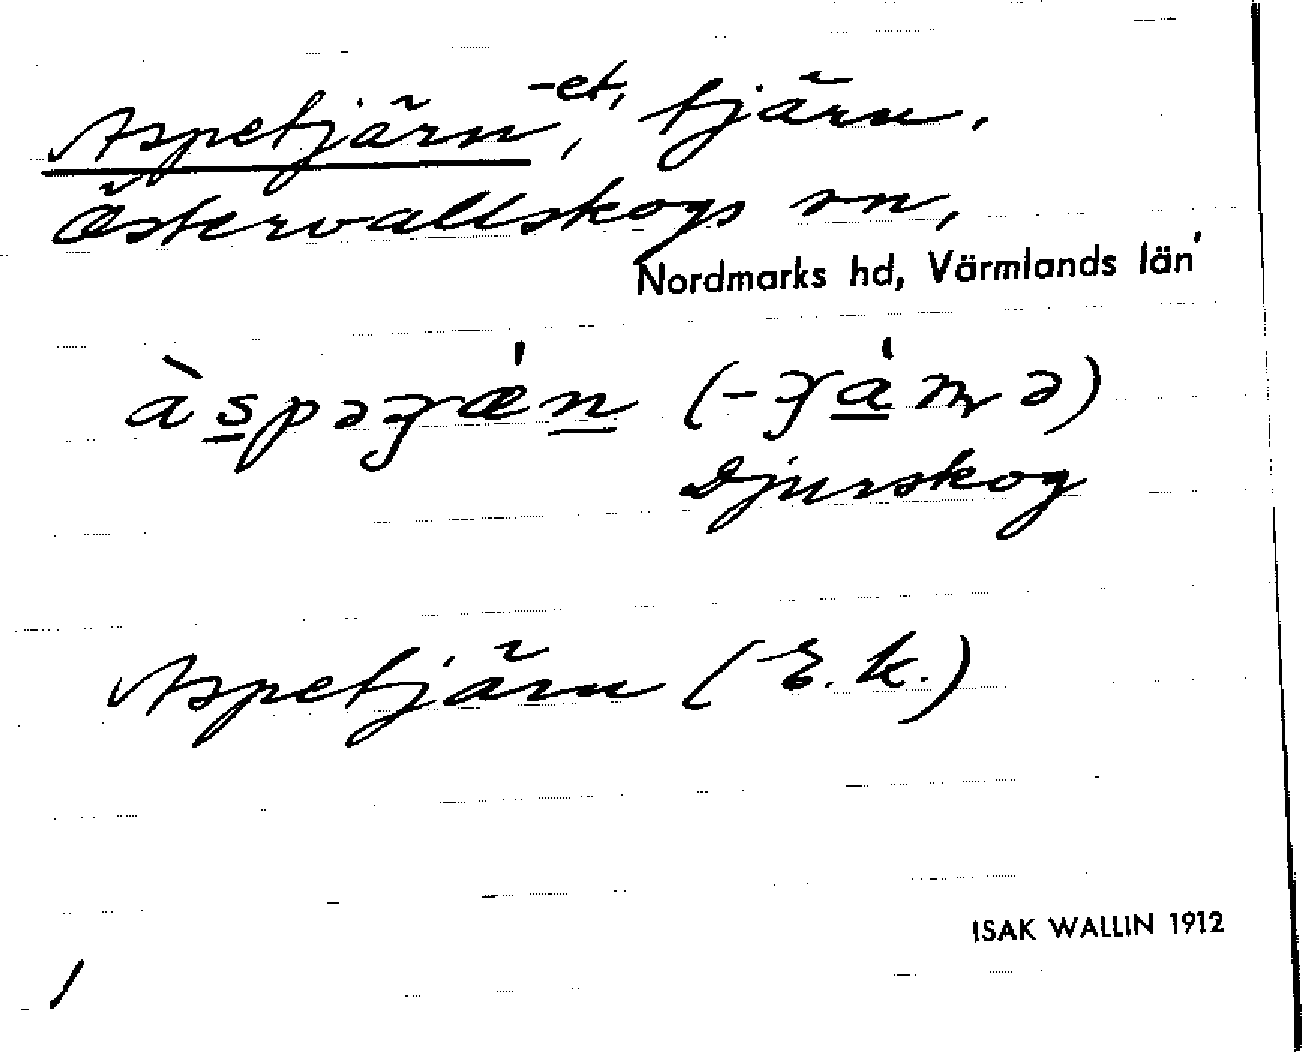 Aspetjärn, -et, tjärn.
Östervallskogs sn,
Nordmarks hd, Värmlands län
Djurskog
Aspetjärn (E.k.)
ISAK WALLIN 1912